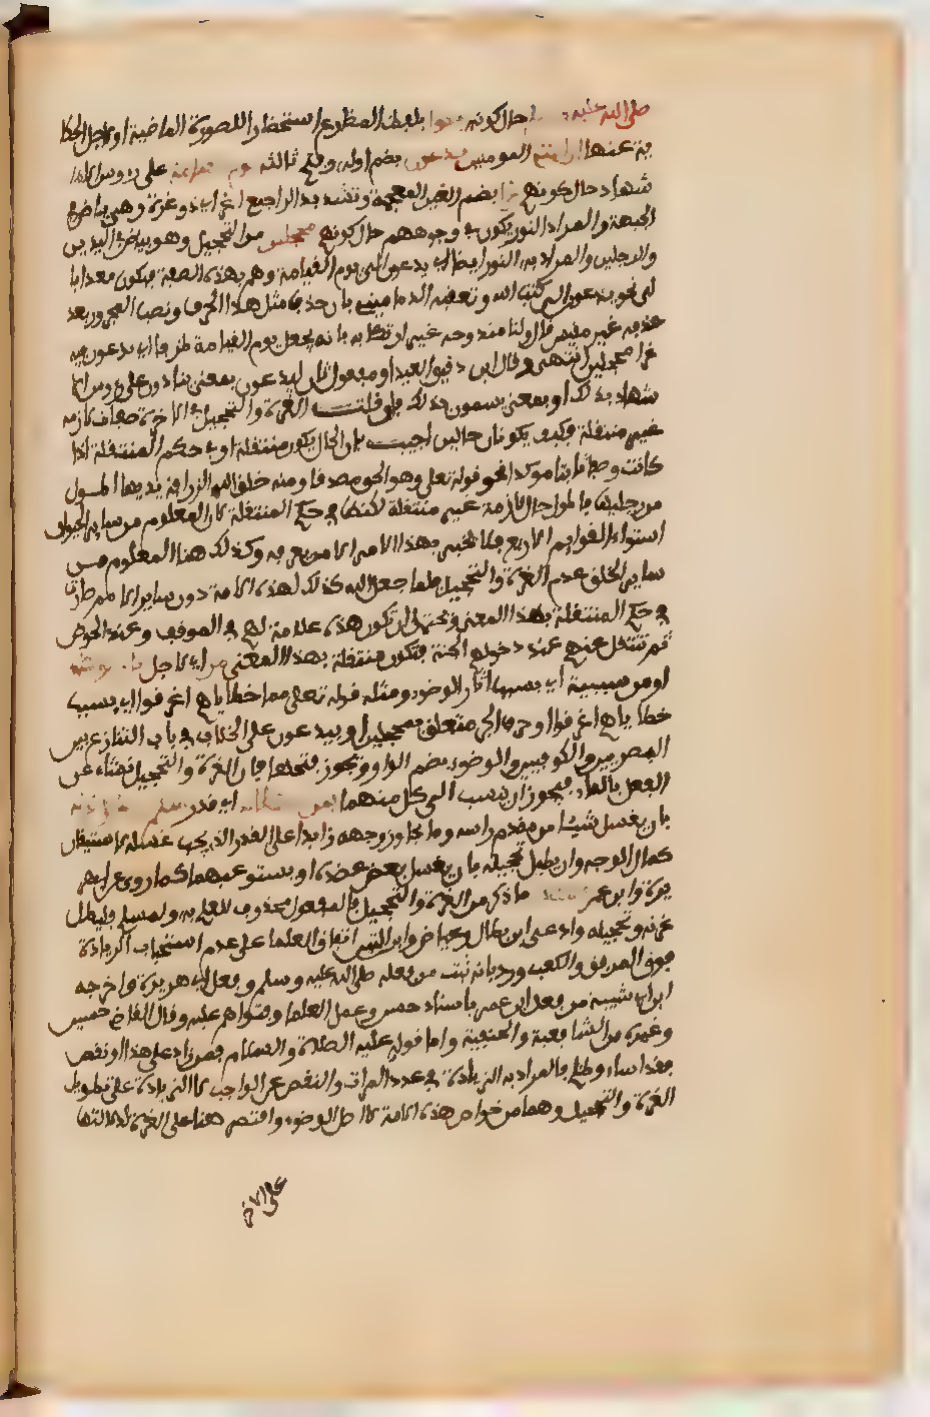 صلى الله عليه حال كونه يقول بلفظ المضارع استحضارا للصورة الماضية او لاجل الحكا
ية عنها ان امتي المومنين يدعون بضم اوله وفتح ثالثه يوم القيامة على روس الا
شهاد حال كونهم غرا بضم الغين المعجمة وتشديد الراء جمع اغر اي ذو غرة وهي بياض في
الجبهة والمراد النور يكون في وجوههم حال كونهم محجلين من التحجيل وهو بياض في اليدين
والرجلين والمراد به النور ايضا اي يدعون الى يوم القيامة وهم بهذه الصفة فيكون معدا با
لى نحو يدعون الى كتاب الله وتعقبه الدماميني بان حذف مثل هذا الحرف ونصب المجرور بعد
حذفه غير مقيس قال ولنا مندوحة عن ارتكابه بان يجعل يوم القيامة ظرفا اي يدعون فيه
غرا محجلين انتهى وقال ابن دقيق العيد او مفعول ثان ليدعون بمعنى ينادون على روس الا
شهاد بذلك او بمعنى يسمون بذلك فان قلت الغرة والتحجيل في الاخرة صفات لازمة
غير منتقلة فكيف يكونان حالين اجيب بان الحال يكون منتقلة او في حكم المنتقلة اذا
كانت وصفا ثابتا موكدا نحو قوله تعلى وهو الحق مصدقا ومنه خلق الله الزرافة يديها اطول
من رجليها فاطول حال لازمة غير منتقلة لكنها في حكم المنتقلة لان المعلوم من ساير الحيوان
استواء القوايم الاربع فلا يخبر بهذا الامر الا من يعرفه وكذلك هنا المعلوم من
ساير الخلق عدم الغرة والتحجيل فلما جعل الله كذلك لهذه الامة دون ساير الامم صارت
في حكم المنتقلة بهذا المعنى ويحتمل ان تكون هذه علامة لهم في الموقف وعند الحوض
ثم تنتقل عنهم عند دخولهم الجنة فتكون منتقلة بهذا المعنى من اي لاجل
او من سببية اي بسبب اثار الوضوء ومثله قوله تعلى مما خطاياهم اغرقوا اي بسبب
خطاياهم اغرقوا وحرف الجر متعلق بمحجلين او بيدعون على الخلاف في باب التنازع بين
البصريين والكوفيين والوضوء بضم الواو ويجوز فتحها فان الغرة والتحجيل نشئا عن
الفعل بالماء فيجوز ان ينسب الى كل منهما فمن استطاع اي قدر منكم
بان يغسل شيئا من مقدم راسه وما يجاوز وجهه زايدا على القدر الذي يجب غسله لاستيفاء
كمال الوجه وان يطيل تحجيله بان يغسل بعض عضده او يستوعبهما كما روي عن ابي هر
يرة وابن عمر ما ذكر من الغرة والتحجيل فالمفعول محذوف للعلم به ولمسلم فليطل
غرته وتحجيله وادعى ابن بطال وعياض وابن التين اتفاق العلما على عدم استحباب الزيادة
فوق المرفق والكعب ورد بانه ثبت من فعله صلى الله عليه وسلم وفعل ابي هريرة واخرجه
ابن ابي شيبة من فعل ابن عمر باسناد حسن وعمل العلما وفتواهم عليه وقال القاضي حسين
وغيره من الشافعية والحنفية واما قوله عليه الصلاة والسلام فمن زاد على هذا او نقص
فقد اساء وظلم فالمراد به الزيادة في عدد المرات والنقص عن الواجب لا الزيادة على تطويل
الغرة والتحجيل وهما من خواص هذه الامة لا اصل الوضوء واقتصر هنا على الغرة لدلالتها
على الاخر